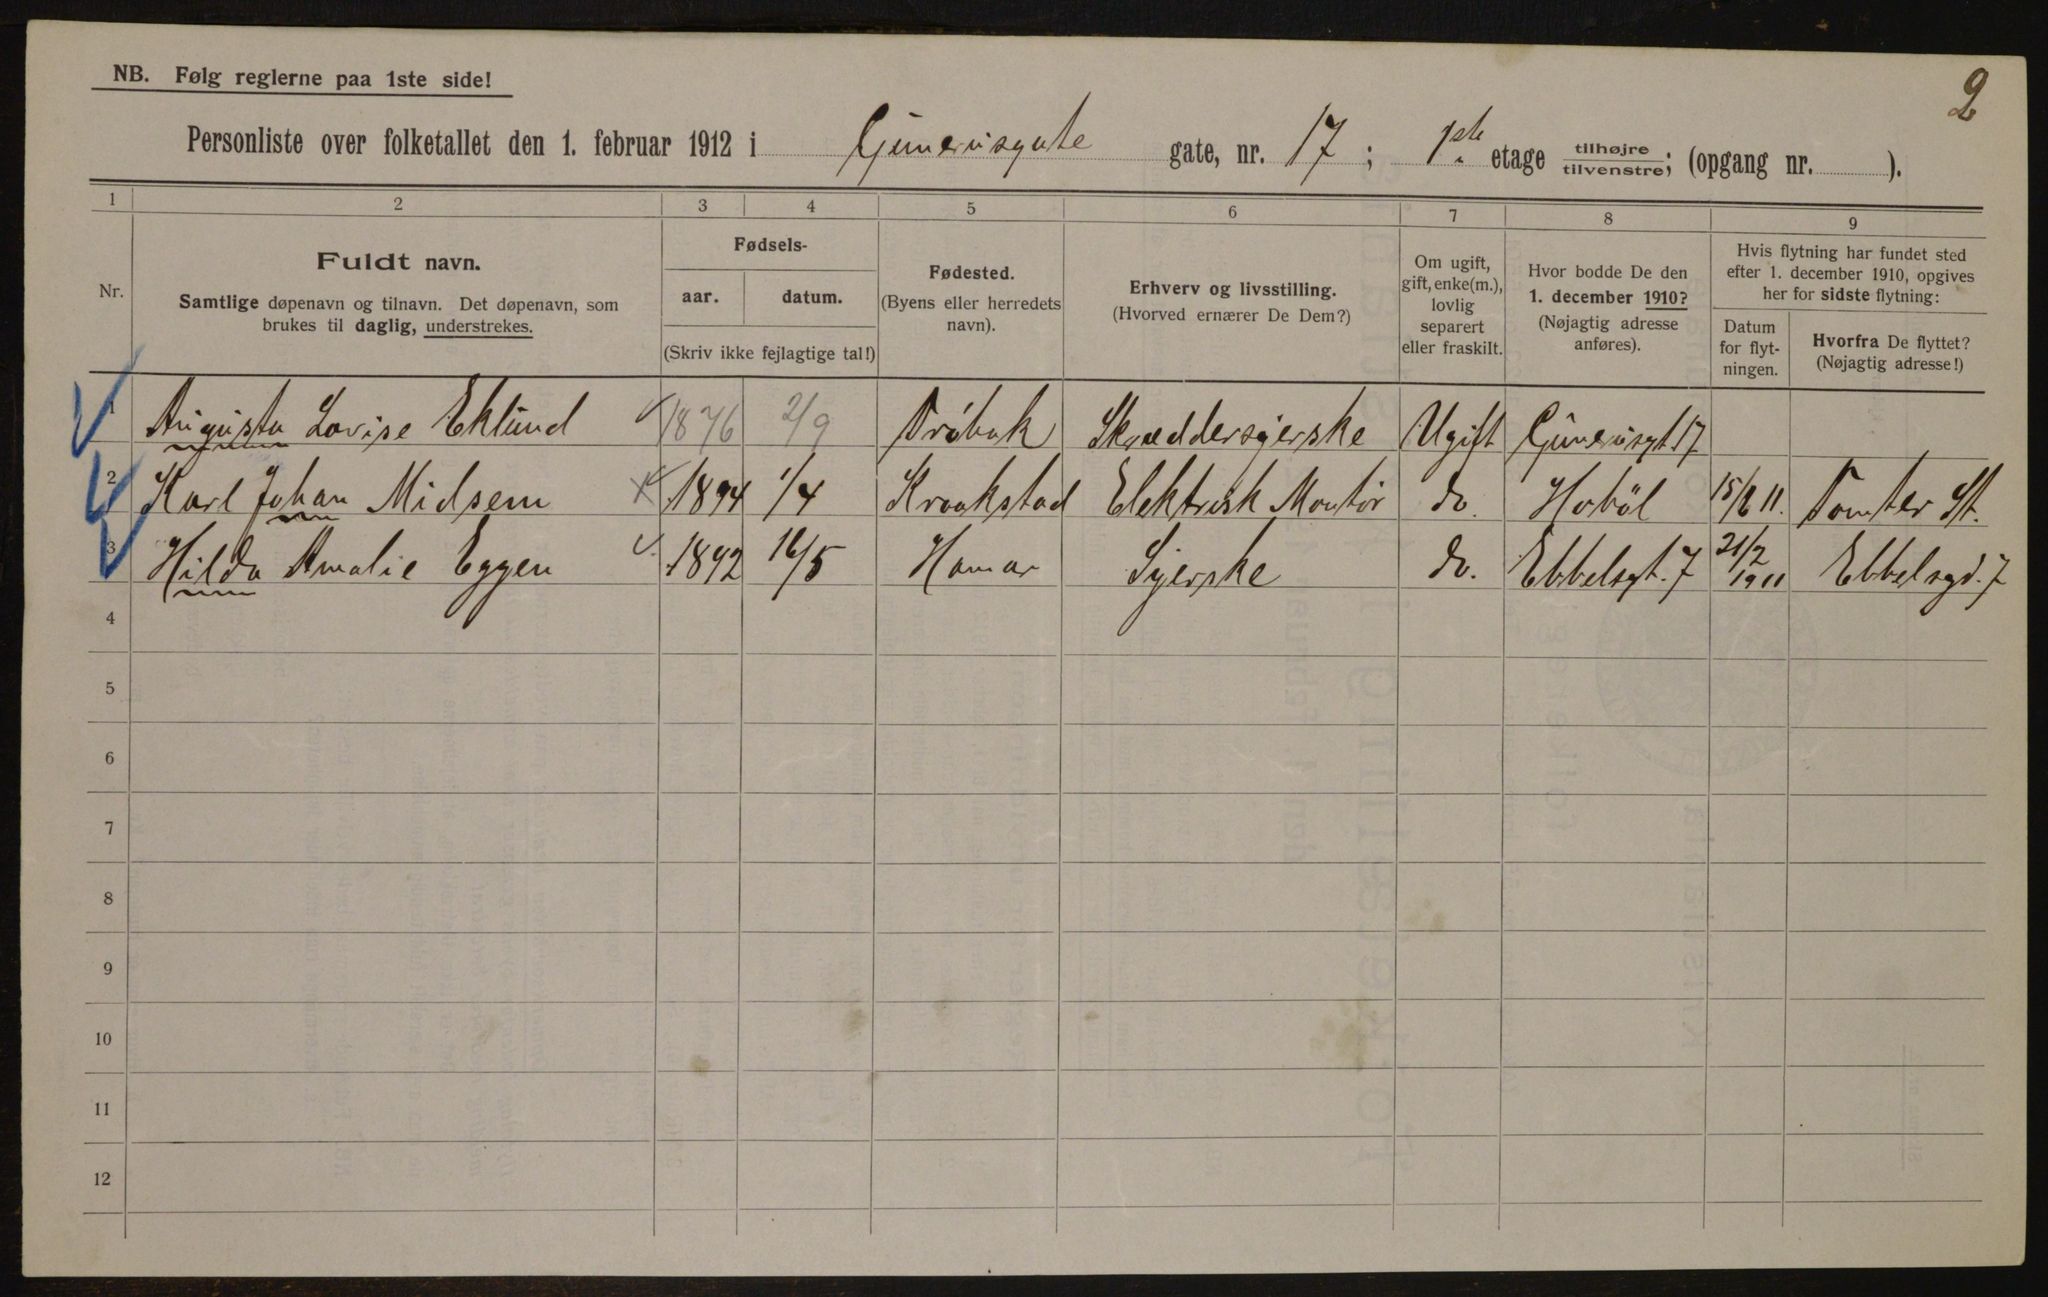 2
NB. Følg reglerne paa 1ste side!
Personliste over folketallet den 1. februar 1912 i Gunerusgate gate, nr. 17; 1ste etage tilhøjre tilvenstre; (opgang nr. ).
1 2 3 4 5 6 7 8 9
Nr.
Fuldt navn.
Samtlige døpenavn og tilnavn. Det døpenavn, som
brukes til daglig, understrekes.
Fødsels-
aar. datum.
(Skriv ikke fejlagtige tal!)
Fødested.
(Byens eller herredets
navn).
Erhverv og livsstilling.
(Hvorved ernærer De Dem?)
Om ugift,
gift, enke(m.),
lovlig
separert
eller fraskilt.
Hvor bodde De den
1. december 1910?
(Nøjagtig adresse
anføres).
Hvis flytning har fundet sted
efter 1. december 1910, opgives
her for sidste flytning:
Datum
for flyt-
ningen.
Hvorfra De flyttet?
(Nøjagtig adresse!)
1 Augusta Lovise Eklund 1876 2/9 Drøbak Skræddersyerske Ugift Gunerusgt 17
2 Karl Johan Midsem 1894 1/4 Kraakstad Elektrisk Montör do. Hoböl 15/6 11. Tomter St.
3 Hilda Amalie Eggen 1892 16/5 Hamar Syerske do. Ebbelsgt. 7 21/2 1911 Ebbelsgd. 7
4
5
6
7
8
9
10
11
12